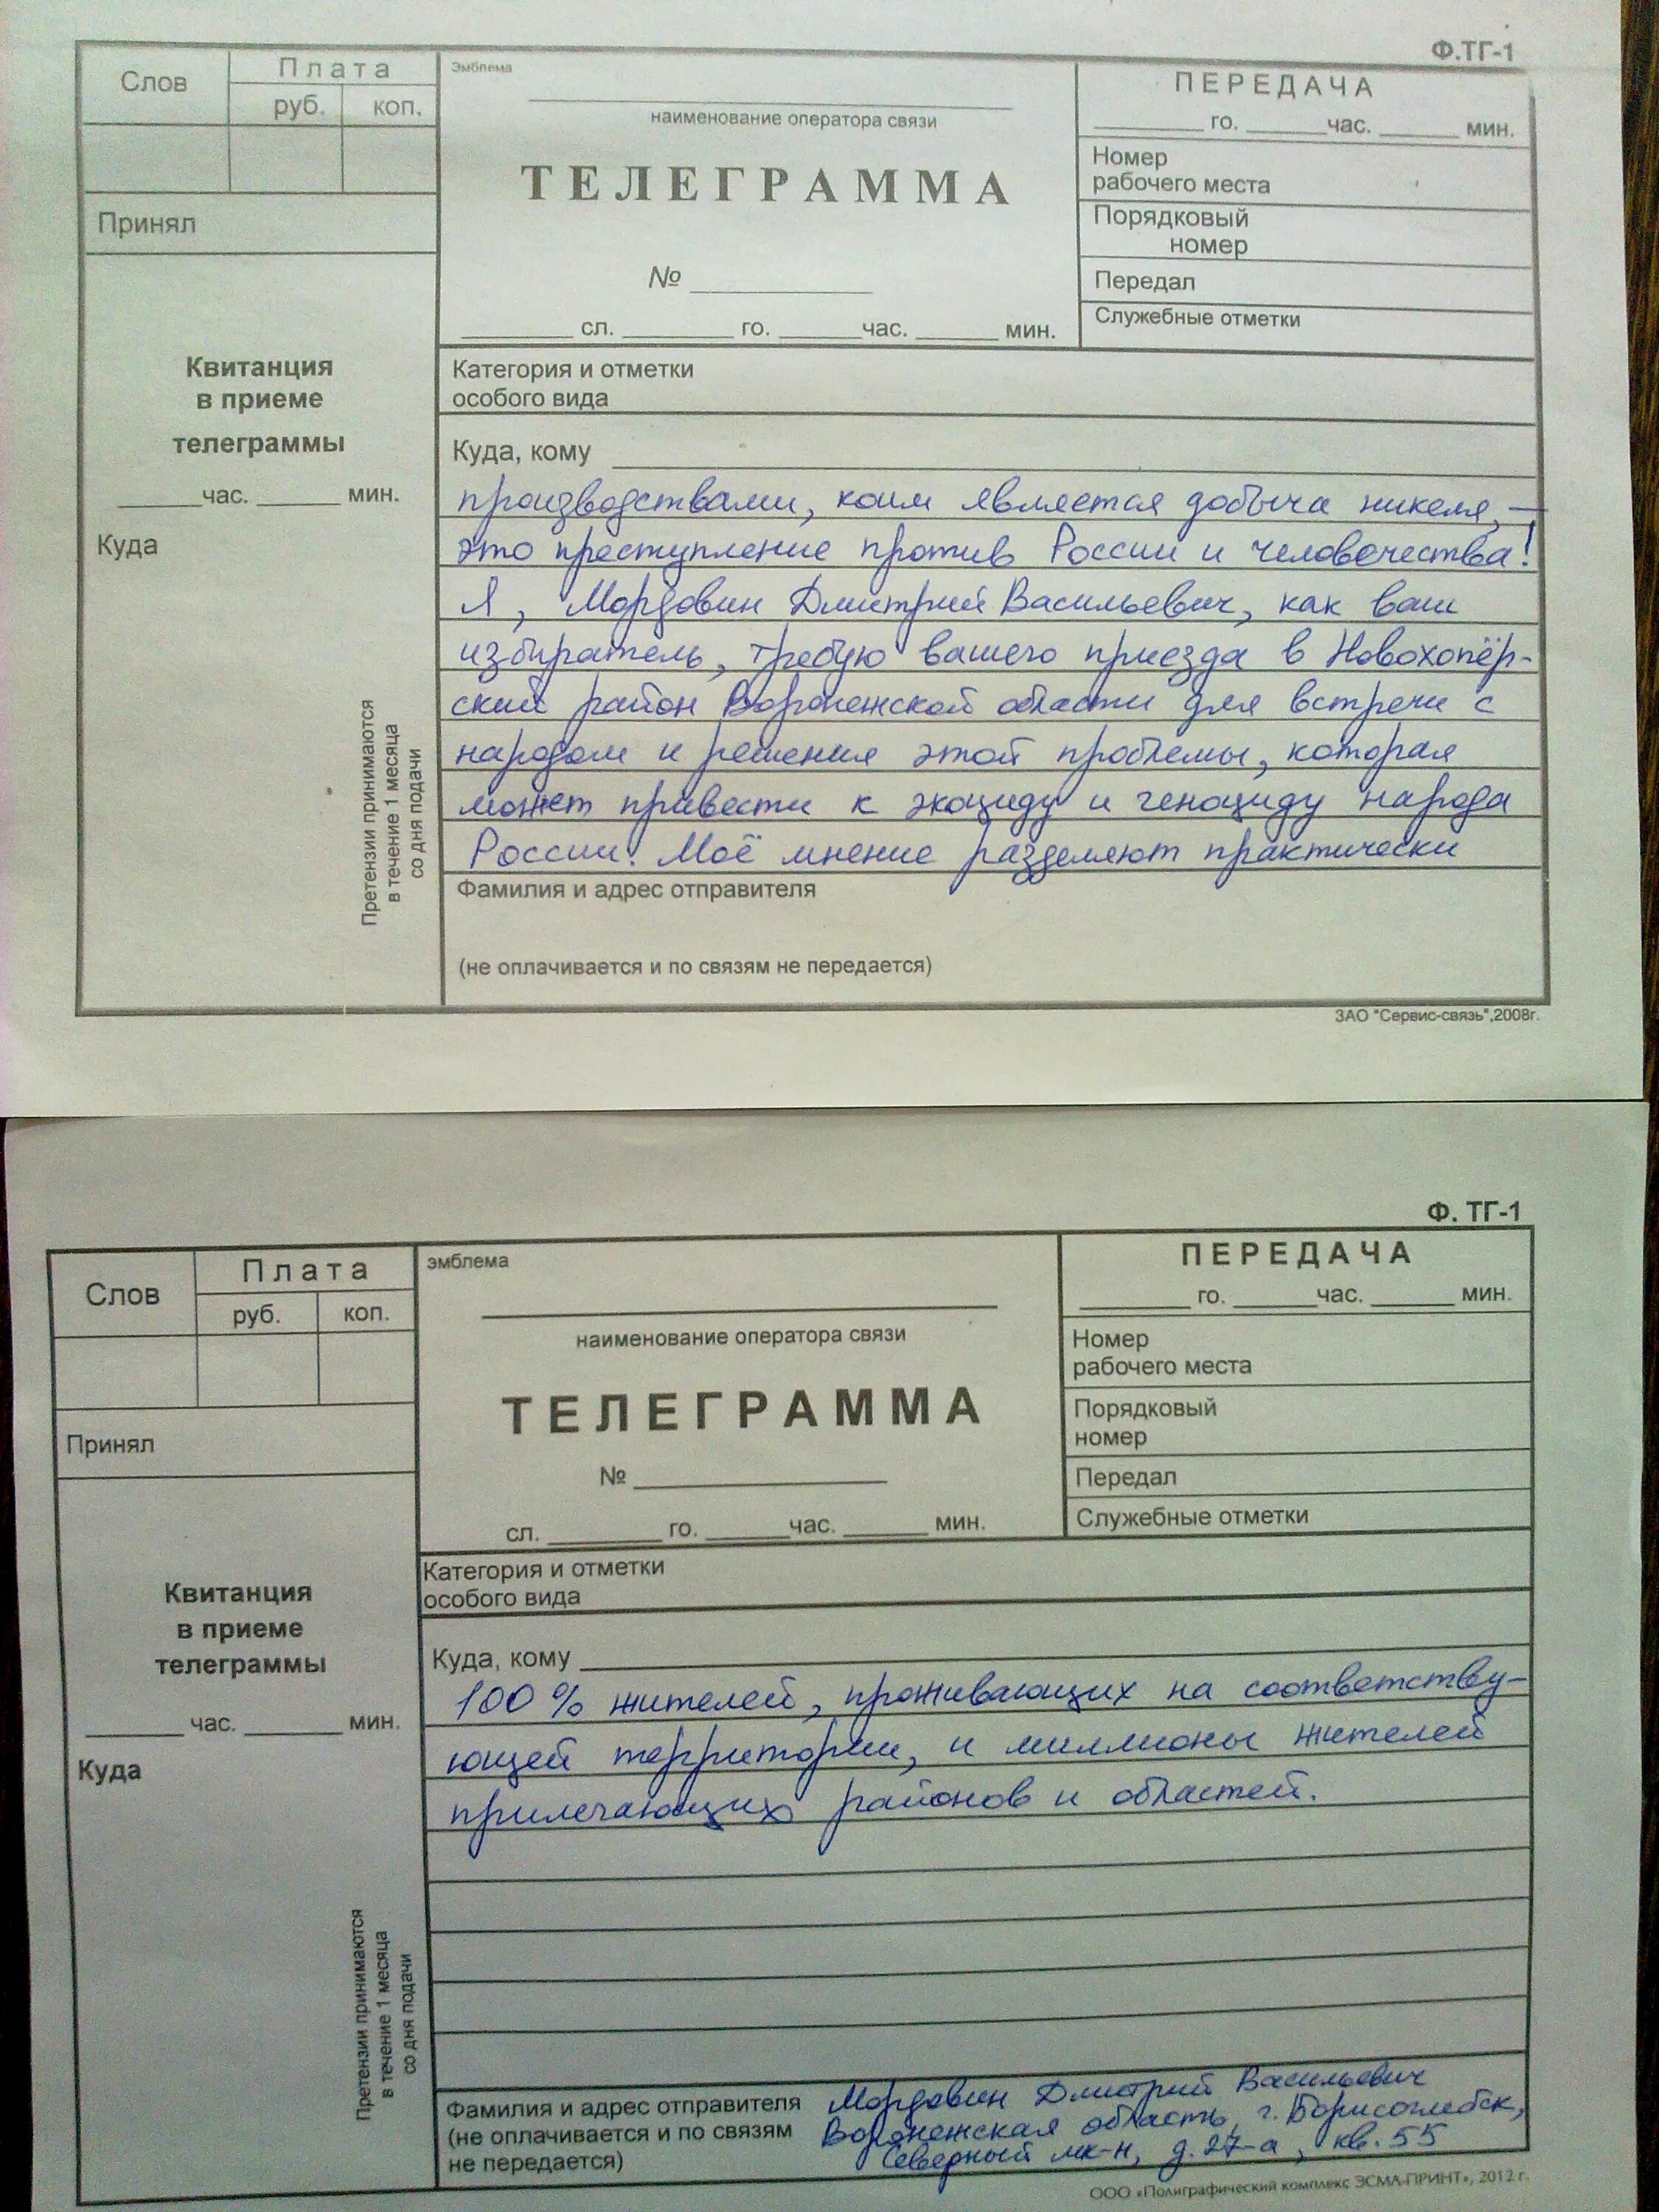 Ф.ТГ-1
Слов
Плата
руб. коп.
Принял
Квитанция
в приеме
телеграммы
час. мин.
Куда
Претензии принимаются
в течение 1 месяца
со дня подачи
Эмблема
наименование оператора связи
ТЕЛЕГРАММА
№
сл. го. час. мин.
ПЕРЕДАЧА
го. час. мин.
Номер
рабочего места
Порядковый
номер
Передал
Служебные отметки
Категория и отметки
особого вида
Куда, кому
производствами, коим является добыча никеля, —
это преступление против России и человечества!
Я, Мордовин Дмитрий Васильевич, как ваш
избиратель, требую вашего приезда в Новохопёр-
ский район Воронежской области для встречи с
народом и решения этой проблемы, которая
может привести к экоциду и геноциду народа
России. Моё мнение разделяют практически
Фамилия и адрес отправителя
(не оплачивается и по связям не передается)
ЗАО "Сервис-связь",2008г.
Ф. ТГ-1
Слов
Плата
руб. коп.
Принял
Квитанция
в приеме
телеграммы
час. мин.
Куда
Претензии принимаются
в течение 1 месяца
со дня подачи
эмблема
наименование оператора связи
ТЕЛЕГРАММА
№
сл. го. час. мин.
ПЕРЕДАЧА
го. час. мин.
Номер
рабочего места
Порядковый
номер
Передал
Служебные отметки
Категория и отметки
особого вида
Куда, кому
100% жителей, проживающих на соответству-
ющей территории, и миллионы жителей
прилегающих районов и областей.
Фамилия и адрес отправителя Мордовин Дмитрий Васильевич
(не оплачивается и по связям Воронежская область, г. Борисоглебск,
не передается) Северный мк-н, д. 27-а, кв. 55
ООО «Полиграфический комплекс ЭСМА-ПРИНТ», 2012 г.